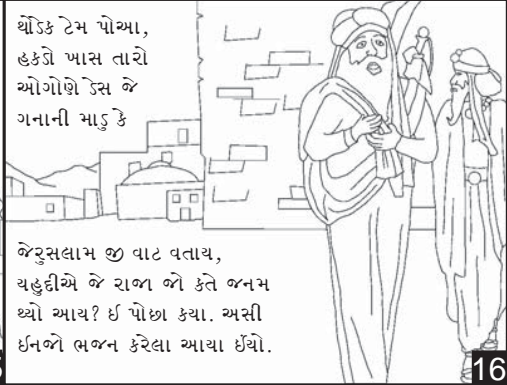 થોડિક ટેમ પોઆ,
હકડો ખાસ તારો
ઓગોણે ડેસ જે
ગનાની માડુ કે
જેરુસલામ જી વાટ વતાય,
યહુદીએ જે રાજા જો કતે જનમ
થ્યો આય? ઈ પોછા કયા. અસી
ઈનજો ભજન કરેલા આયા ઈંયો.
16